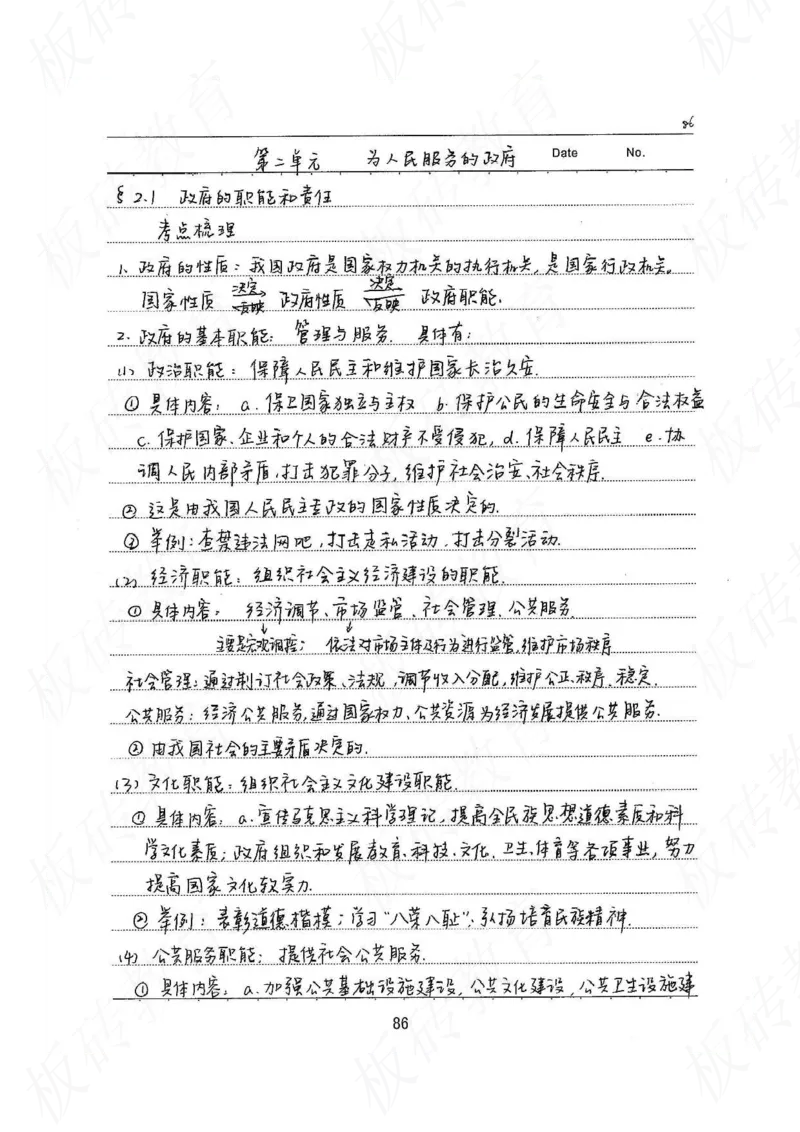 86
第二单元 为人民服务的政府 Date No.
§2.1 政府的职能和责任
考点梳理
1、政府的性质：我国政府是国家权力机关的执行机关，是国家行政机关。
国家性质 决定 反映 政府性质 决定 反映 政府职能.
2. 政府的基本职能：管理与服务. 具体有：
(1) 政治职能：保障人民民主和维护国家长治久安.
① 具体内容：a. 保卫国家独立与主权 b. 保护公民的生命安全与合法权益
c. 保护国家、企业和个人的合法财产不受侵犯, d. 保障人民民主 e. 协
调人民内部矛盾，打击犯罪分子，维护社会治安、社会秩序.
② 这是由我国人民民主专政的国家性质决定的.
③ 举例：查禁违法网吧，打击走私活动，打击分裂活动.
(2) 经济职能：组织社会主义经济建设的职能.
① 具体内容：经济调节、市场监管、社会管理、公共服务.
主要是宏观调控； 依法对市场主体及行为进行监管,维护市场秩序
社会管理：通过制订社会政策、法规，调节收入分配，维护公正、秩序、稳定.
公共服务：经济公共服务,通过国家权力、公共资源为经济发展提供公共服务.
② 由我国社会的主要矛盾决定的.
(3) 文化职能：组织社会主义文化建设职能.
① 具体内容：a. 宣传马克思主义科学理论，提高全民族思想道德素质和科
学文化素质；政府组织和发展教育、科技、文化、卫生、体育等各项事业，努力
提高国家文化软实力.
② 举例：表彰道德楷模；学习“八荣八耻”；弘扬培育民族精神.
(4) 公共服务职能：提供社会公共服务.
① 具体内容：a. 加强公共基础设施建设，公共文化建设，公共卫生设施建
86
板砖教育